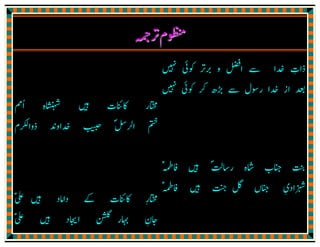 منظوم ترجمہ
ذاتِ خدا سے افضل و برتر کوئی نہیں
بعد از خدا رسول سے بڑھ کر کوئی نہیں
مختارِ کائنات ہیں شہنشاہِ اُمم
ختم الرسل حبیب خداوند ذوالکرم
بنتِ جنابِ شاہِ رسالت ہیں فاطمہ
شہزادیِ جناں گلِ جنت ہیں فاطمہ
مختارِ کائنات کے داماد ہیں علی
جانِ بہارِ گلشنِ ایجاد ہیں علی